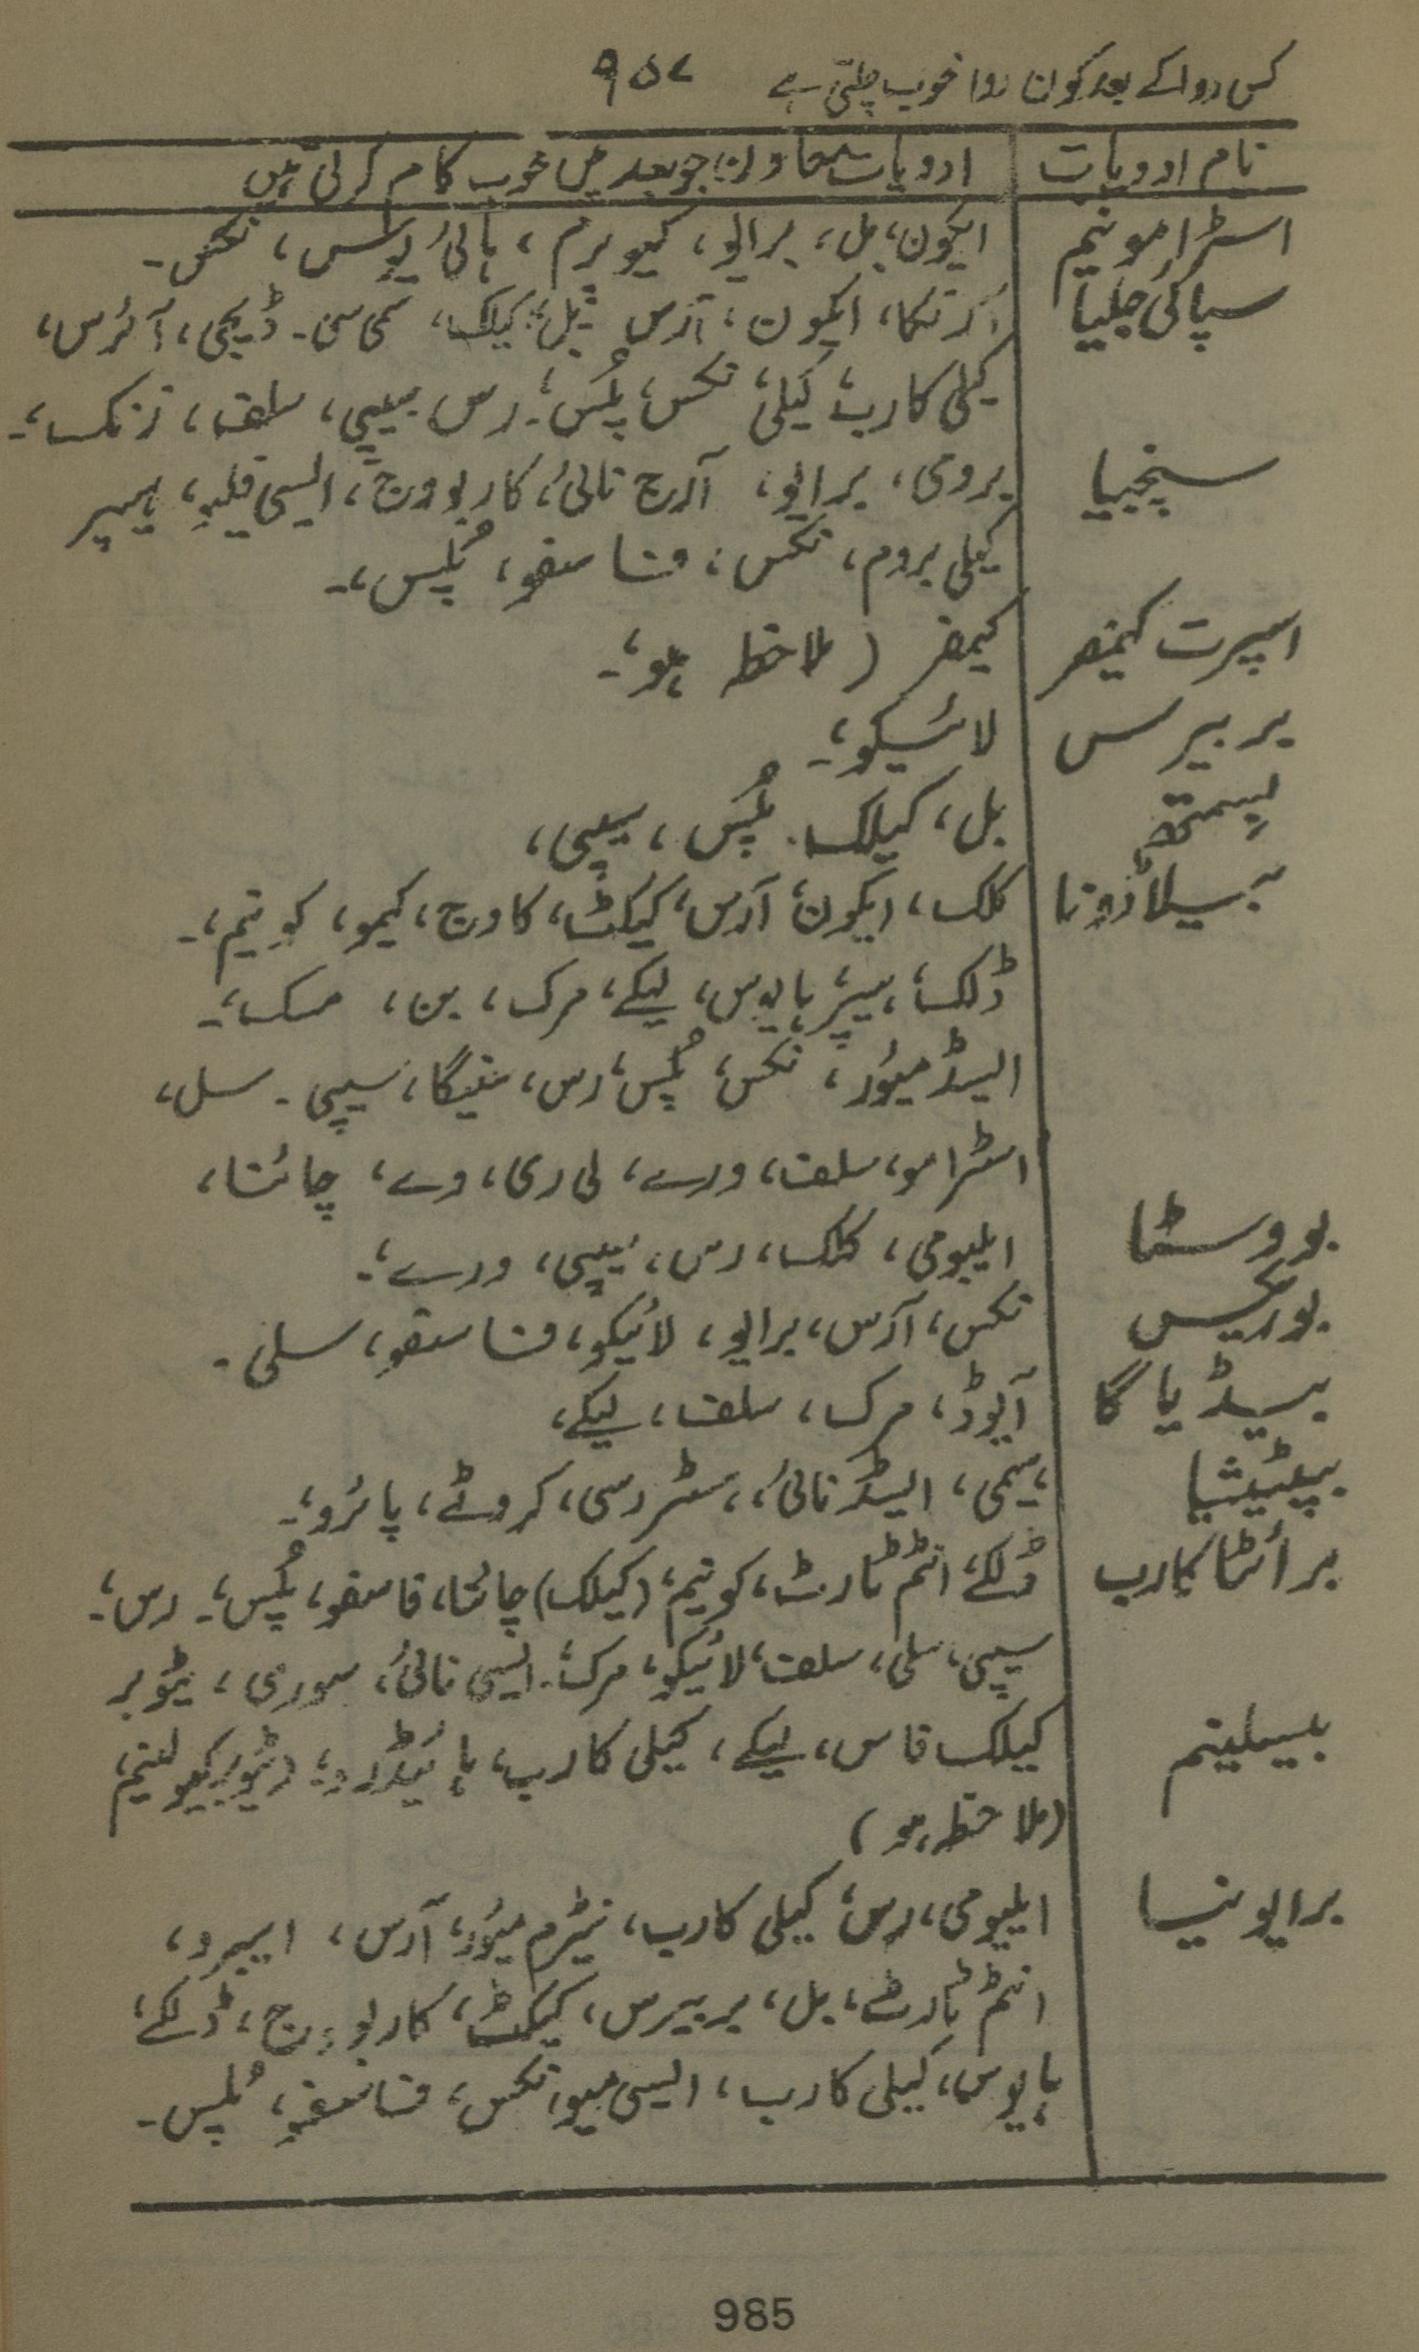 کس دوا کے بعد کون دوا خوب چلتی ہے ۹۵۷
نام ادویات ادویات معاون جو بعد میں خوب کام کرتی ہیں
اسٹرامونیم ایکون، بل، برایو، کیوپرم، ہائیوس، نکس۔
سپاکی جیلیا آرنکا، ایکون، آرس، بل، کیلک، سمی سی۔ ڈیجی، آئرس،
کیلی کارب، کیلی نکس، پلس، رس، سیپی، سلف، زنک،۔
سنجیا برومی، برایو، آرج نائی، کاربوویج، ایسی فلو، ہیپر
کیلی بروم، نکس، فاسفو، پلس،۔
اسپرٹ کیمفر کیمفر (ملاحظہ ہو،۔
بربیرس لائیکو،۔
بسمتھ بل، کیلک۔ پلس، سیپی،
بیلاڈونا کلک، ایکون، آرس، کیکٹ، کاوج، کیمو، کونیم،۔
ڈلک، ہیپر، ہایوس، لیکے، مرک، بن، مسک،۔
ایسڈ میور، نکس، پلس، رس، سنیگا، سیپی۔ سل،
اسٹرامو، سلف، ورے، لی ری، وے، چائنا،
بووسٹا ایلیومی، کلک، رس، سیپی، ورے،۔
بوریکس نکس، آرس، برایو، لائیکو، فاسفو، سلی۔
بیڈیاگا آیوڈ، مرک، سلف، لیکے،
بپٹیشیا سیمی، ایسڈ نائی، سٹر رسی، کروٹے، پائرو،۔
برائٹا کارب ڈلکے، انٹم ٹارٹ، کونیم، (کیلک) چائنا، فاسفو، پلس،۔ رس،۔
سیپی، سلی، سلف، لائیکو، مرک،۔ ایسی نائی، سوری، ٹیوبر
بیسیلینم کیلک فاس، لیکے، کیلی کارب، ہائیڈرو، (ٹیوبرکیولینم
(ملاحظہ ہو)
برایونیا ایلیومی، رس، کیلی کارب، نیٹرم میور، آرس، ایبرو،
انٹم ٹارٹ، بل، بربیرس، کیکٹ، کاربوویج، ڈلکے،
ہایوس، کیلی کارب، ایسی میو، نکس، فاسفو، پلس۔
985